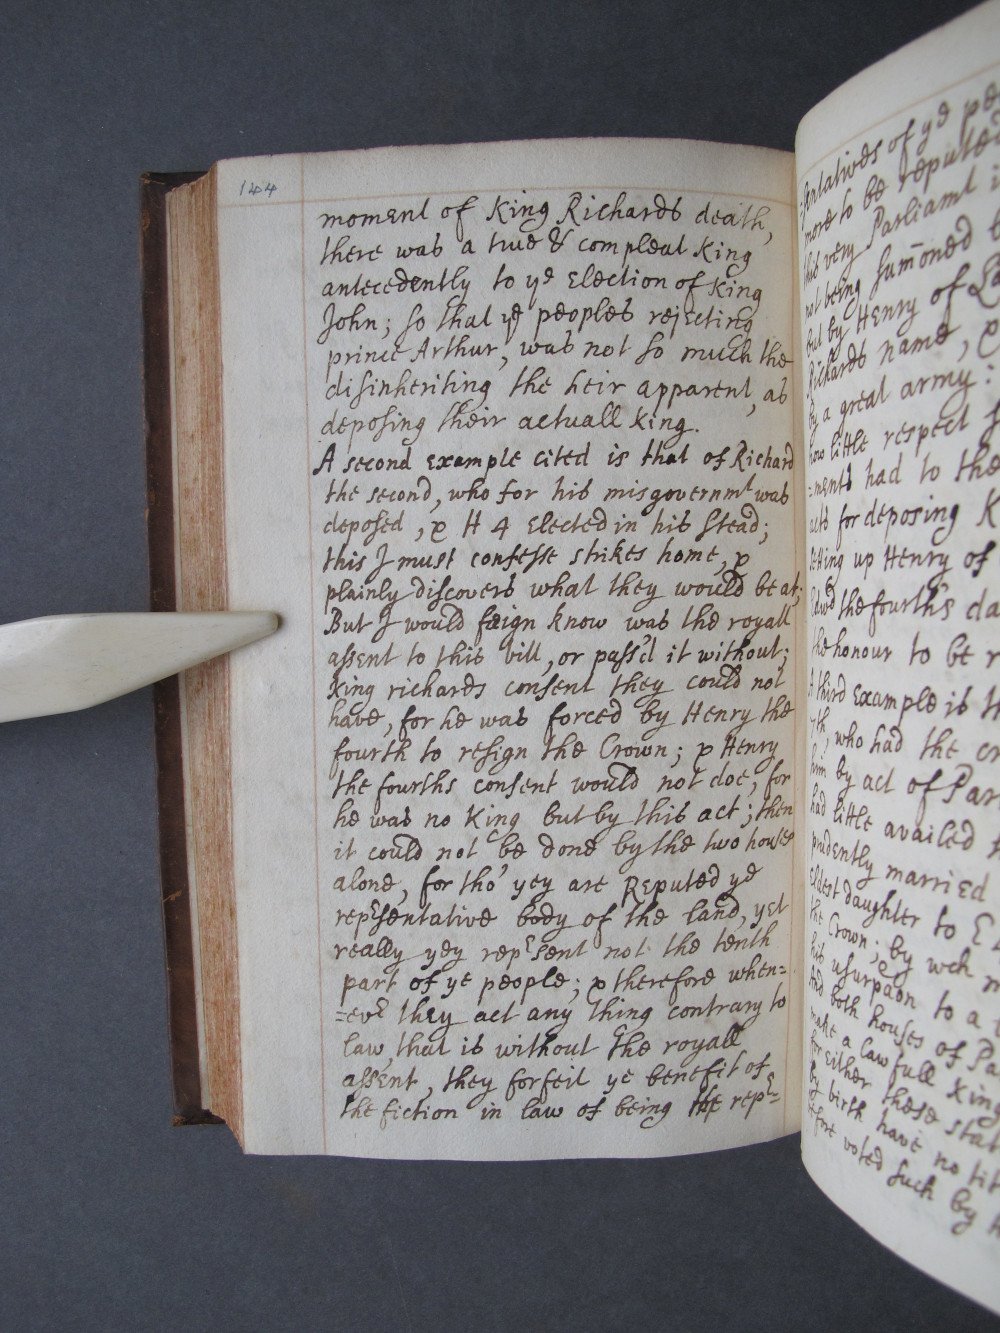 144
moment of King Richards death,
there was a true & compleat King
antecedently to ye Election of King
John; so that ye peoples rejecting
prince Arthur, was not so much the
disinheriting the heir apparent, as
deposing their actuall King.
A second Example cited is that of Richard
the second, who for his misgovernmt was
deposed, & H 4 Elected in his stead;
this I must confesse strikes home, &
plainly discovers what they would be at;
But I would faign know was the royall
assent to this bill, or pass'd it without;
King richards consent they could not
have, for he was forced by Henry the
fourth to resign the Crown; & Henry
the fourths consent would not doe, for
he was no King but by this act; then
it could not be done by the two houses
alone, for tho' yey are Reputed ye
representative body of the land, yet
really yey represent not the tenth
part of ye people; & therefore when=
=evr they act any thing contrary to
law, that is without the royall
assent, they forfeit ye benefit of
the fiction in law of being the repre=
=sentatives of ye
more to be reputed
this very Parliamt
not being summoned
but by Henry of
Richards name, &
by a great army:
how little respect
=ments had to the
acts for deposing K
setting up Henry of
Edwd the fourth's
the honour to be
A third Example is
7th, who had the
him by act of Par
had little availed
prudently married
Eldest daughter to E
the Crown; by wch
his usurpaon to a
And both houses of Pa
make a lawfull King
for Either these
by birth have no tit
before voted such by